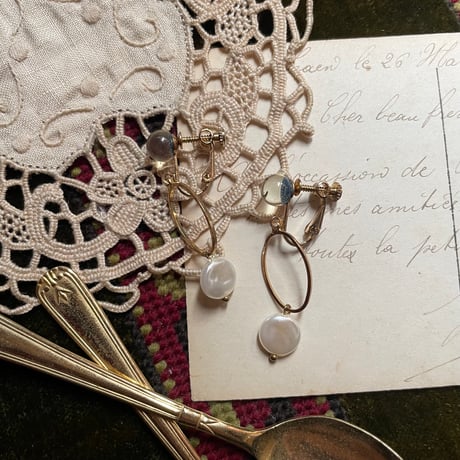 Caen le 26 Ma
Cher beau frè
l'occasion de
mes amitiés
toutes la pet